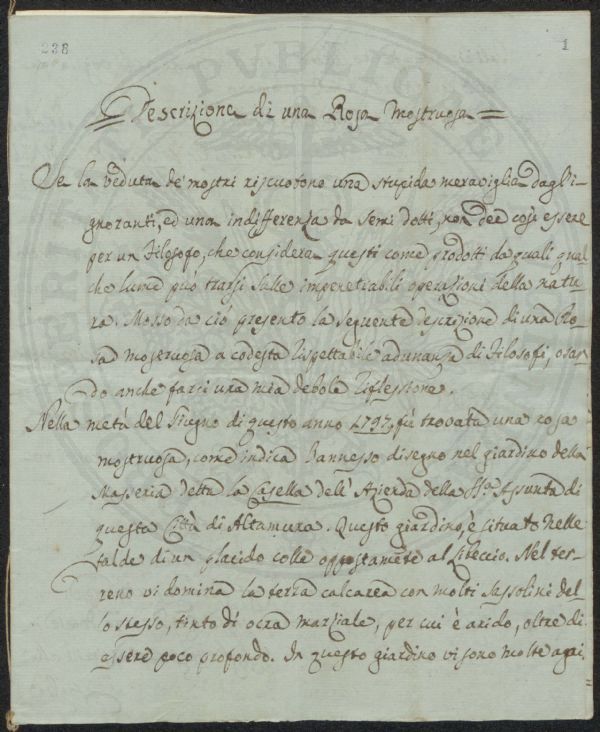 238
1
Descrizione di una Rosa Mostruosa
Se la veduta de' mostri riscuotono una stupida meraviglia dagl'i-
gnoranti, ed una indifferenza da semi dotti, non dee così essere
per un Filosofo, che considera questi come prodotti da quali qual
che lume può trarsi sulle impenetrabili operazioni della natu-
ra. Mosso da ciò presento la seguente descrizione di una Ro-
sa mostruosa a codesta rispettabile adunanza di Filosofi, osan-
do anche farci una mia debole riflessione.
Nella metà del Giugno di questo anno 1797. fù trovata una rosa
mostruosa, come indica l'annesso disegno nel giardino della
Masseria detta la Casella dell'Azienda della Assunta di
questa Città di Altamura. Questo giardino, è situato nelle
falde di un placido colle oppostamente al Libeccio. Nel ter-
reno vi domina la terra calcarea con molti sassolini del-
lo stesso, tinto di ocra marziale, per cui è arido, oltre di
essere poco profondo. In questo giardino vi sono molte